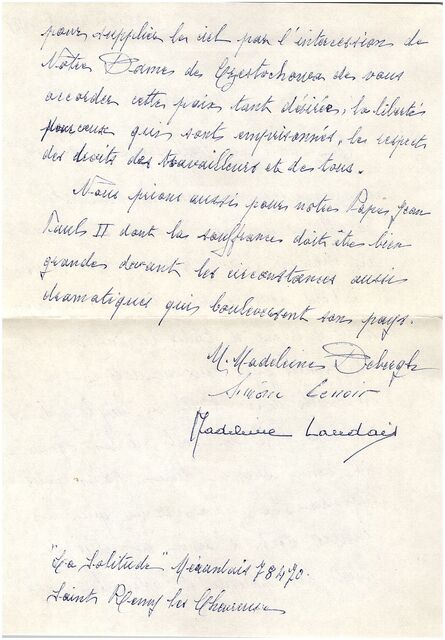 pour supplier le ciel par l'intercession de
Notre Dame de Czestochowa de vous
accorder cette paix tant désirée, la liberté
pour ceux qui sont emprisonnés, le respect
des droits des travailleurs et de tous.
Nous prions aussi pour notre Pape Jean
Paul II dont la souffrance doit être bien
grande devant les circonstances aussi
dramatiques qui bouleversent son pays.
M. Madeleine Debergh
Simone Lenoir
Madeleine Landais
"La Solitude" Mérantais 78470.
Saint Remy les Chevreuse